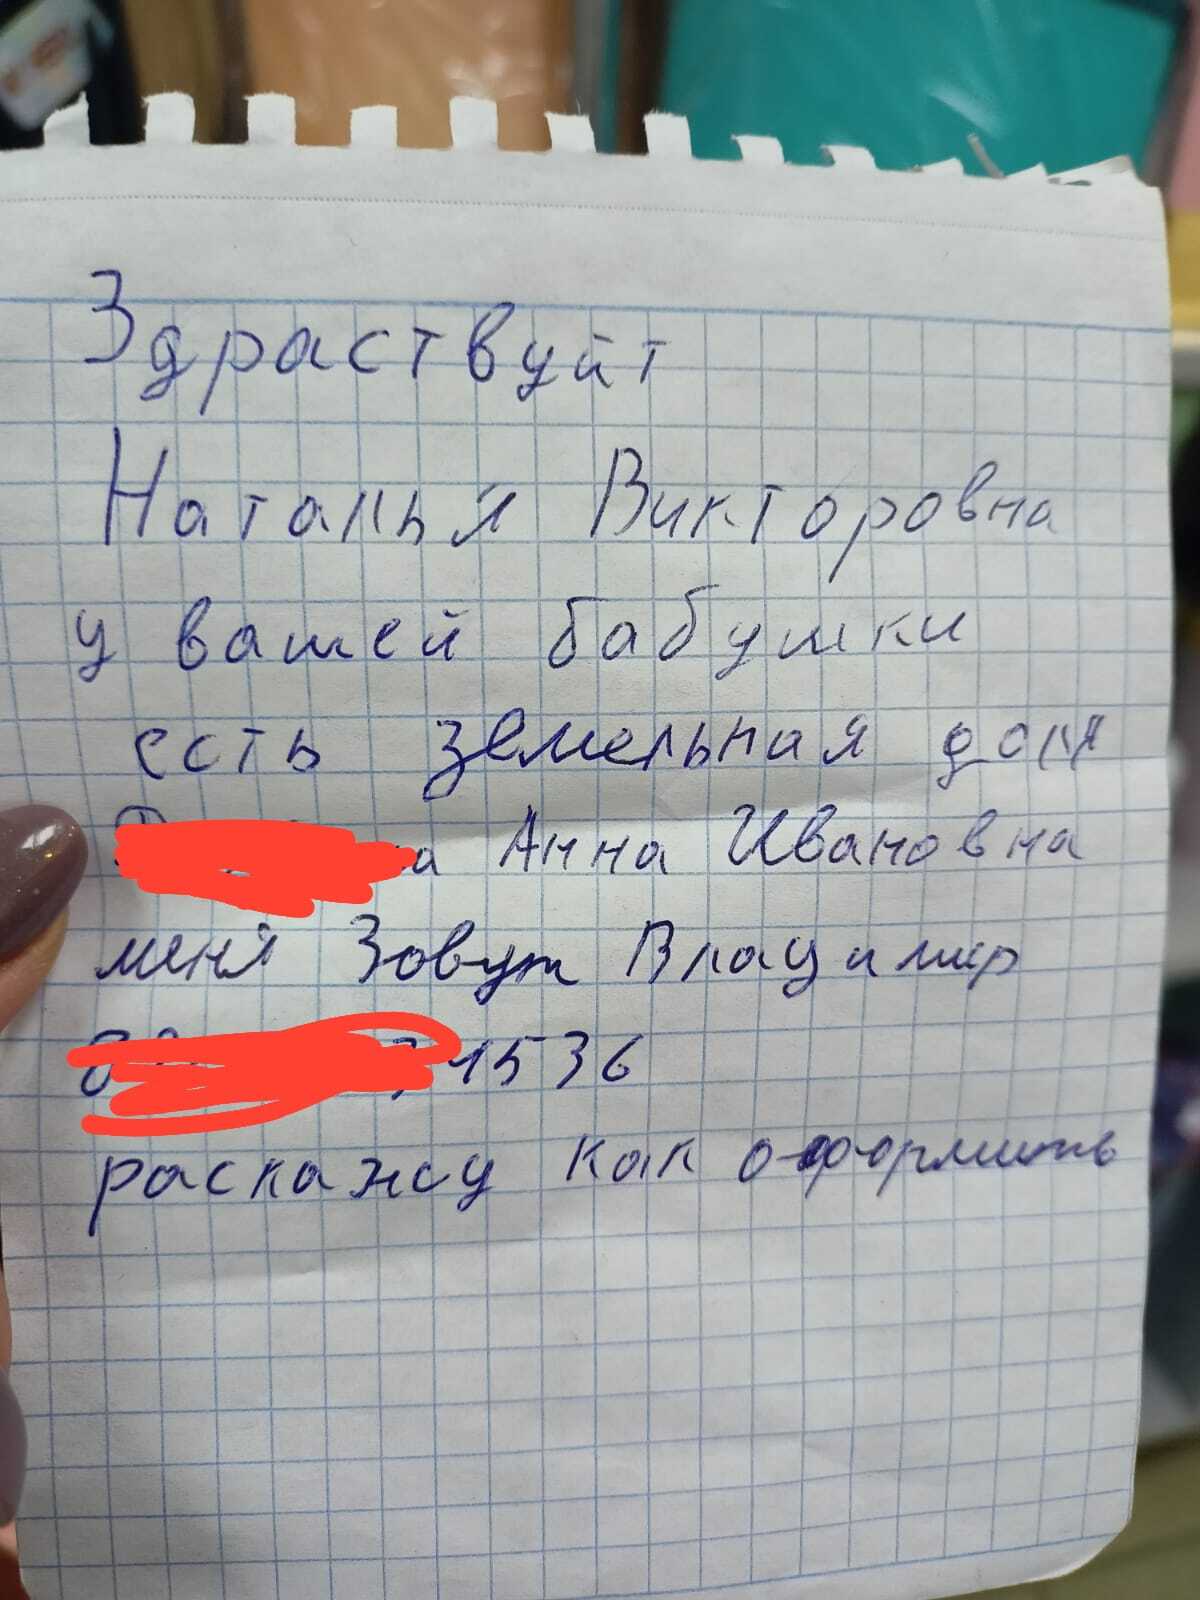 Здраствуйт
Наталья Викторовна
у вашей бабушки
есть земельная доля
Анна Ивановна
меня Зовут Владимир
1536
раскажу как оформить